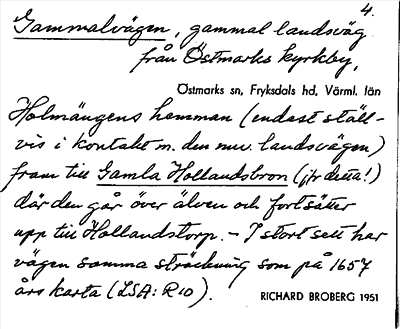 4.
Gammalvägen, gammal landsväg
från Östmarks kyrkby,
Östmarks sn, Fryksdals hd, Värml. län
Holmängens hemman (endast ställ-
vis i kontakt m. den nuv. landsvägen)
fram till Gamla Hollandsbron (jfr detta!)
där den går över älven och fortsätter
upp till Hollandstorp. – I stort sett har
vägen samma sträckning som på 1657
års karta (LSA: R10).
RICHARD BROBERG 1951